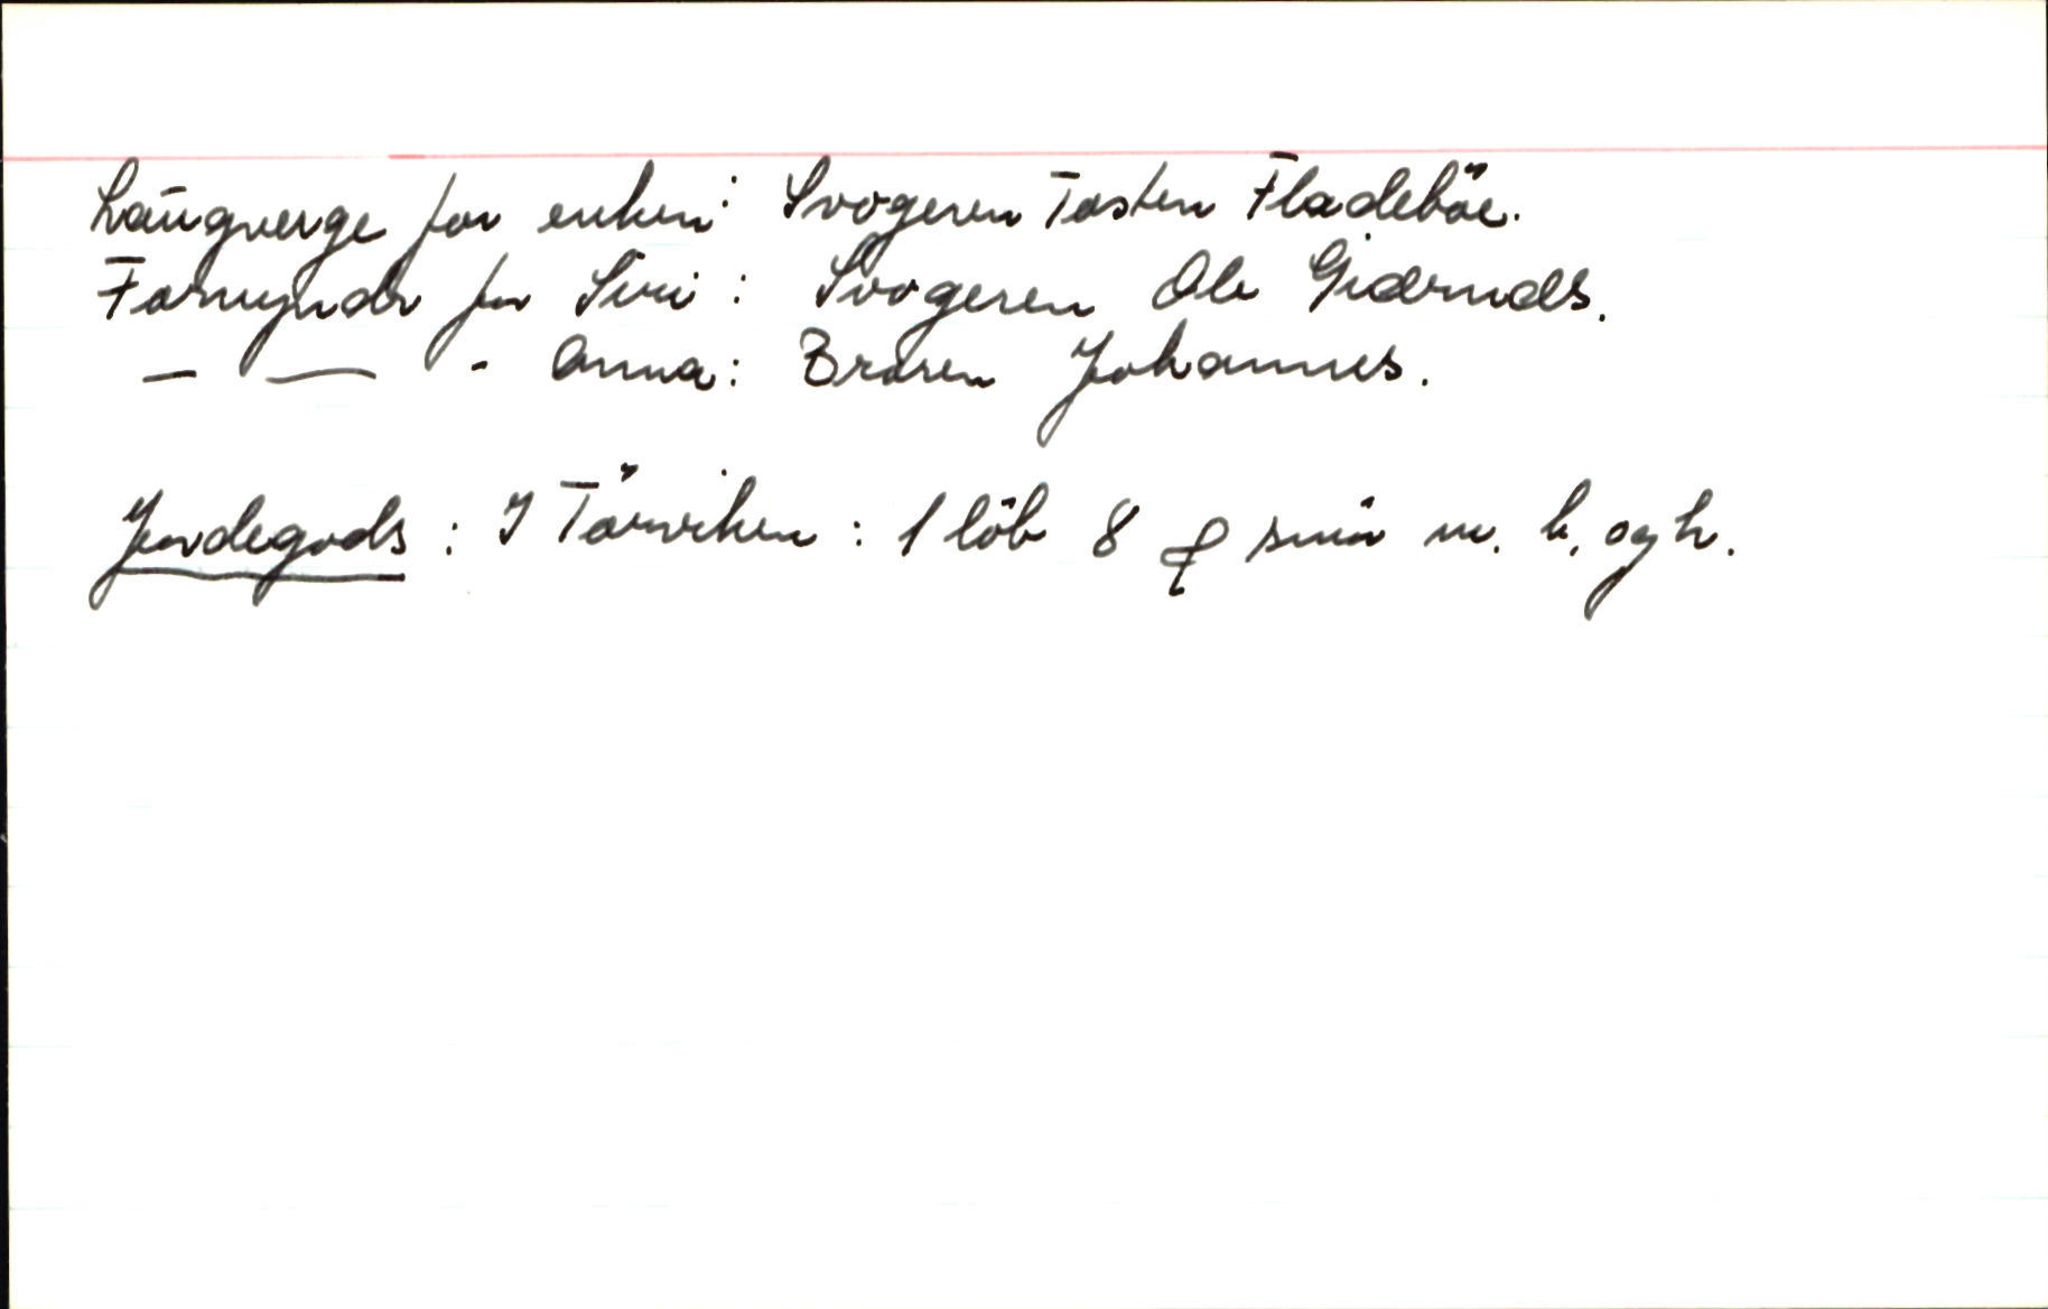 Laugverge for enken: Svogeren Tosten Fladeböe.
Formyndr for Siri: Svogeren Ole Giermds.
— — - Anna: Broren Johannes.
Jordegods: I Törviken: 1 löb 8 ₰ smör m. b. og h.